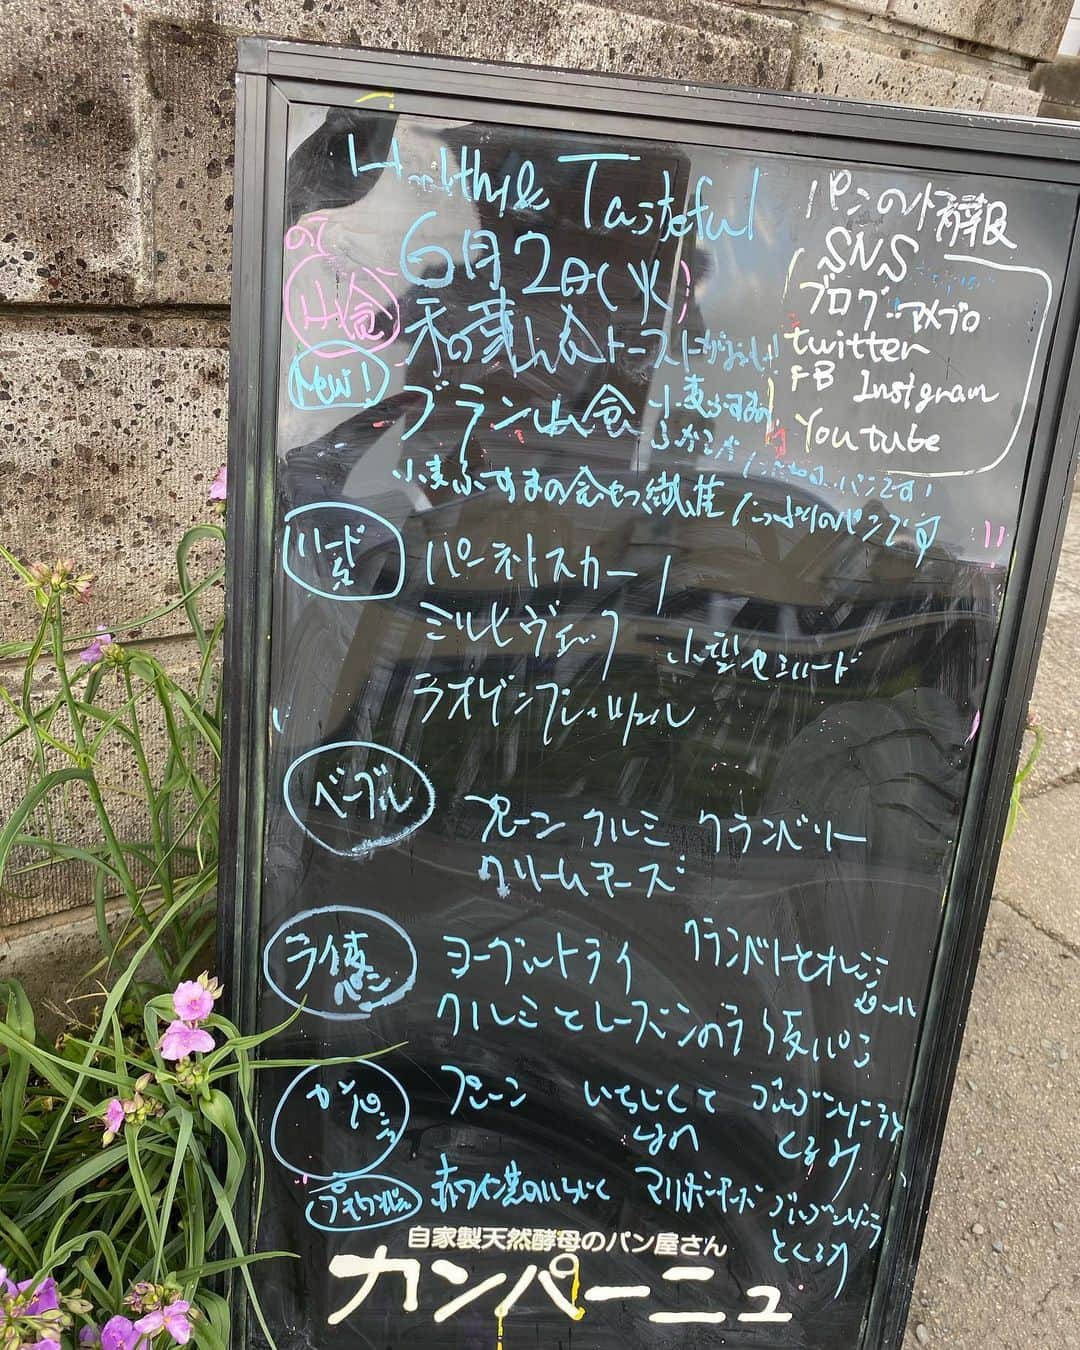 Healthy & Tasteful
パンのトマ情報
SNS
ブログ アメブロ
twitter
FB Instgram
Youtube
6月2日(火)
山食
トーストがおいしい!
New!
ブラン山食 小麦ふすまの
パンです!
小麦ふすまの食もつ繊維たっぷりのパンです
ハード系
パーネトスカーノ
ミルヒヴェック 小型セミハード
ラオゲンプレッツェル
ベーグル
プレーン クルミ クランベリー
クリームチーズ
ライ麦パン
ヨーグルトライ クランベリーとオレンジ
クルミとレーズンのライ麦パン
カンパーニュ
プレーン いちじくと ゴルゴンゾーラ
くるみ
赤ワイン煮のいちじく マリボーチーズ ゴルゴンゾーラ
とくるみ
自家製天然酵母のパン屋さん
カンパーニュ